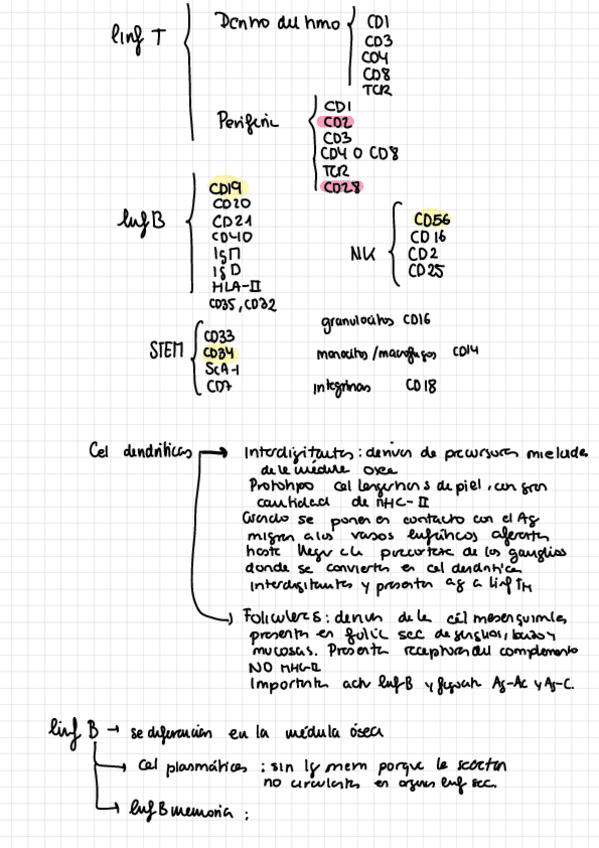 linf T
Dentro del timo
CD1
CD3
CD4
CD8
TCR
Periferic
CD1
CD2
CD3
CD4 O CD8
TCR
CD28
linf B
CD19
CD20
CD21
CD40
IgM
IgD
HLA-II
CD35, CD32
NK
CD56
CD16
CD2
CD25
STEM
CD33
CD34
SCA-1
CD7
granulocitos CD16
monocitos/macrofagos CD14
integrinas CD18
Cel dendríticas
Interdigitantes: derivan de precursores mieloides
de la médula osea
Prototipo cel Langerhans de piel, con gran
cantidad de MHC-II
Cuando se ponen en contacto con el Ag
migran a los vasos linfáticos aferentes
hasta llegar a la paracorteza de los ganglios
donde se convierten en cel dendritica
interdigitantes y presentan ag a linf TH
Foliculares: derivan de la cél mesenquimales
presentes en folic sec de ganglios, bazo y
mucosas. Presenta receptores del complemento
NO MHC-II
Importantes activ linf B y Ag-Ac y Ag-C.
linf B → se diferencian en la médula ósea
Cel plasmáticas : sin Ig mem porque la secretan
no circulantes en organ linf sec.
linf B memoria :